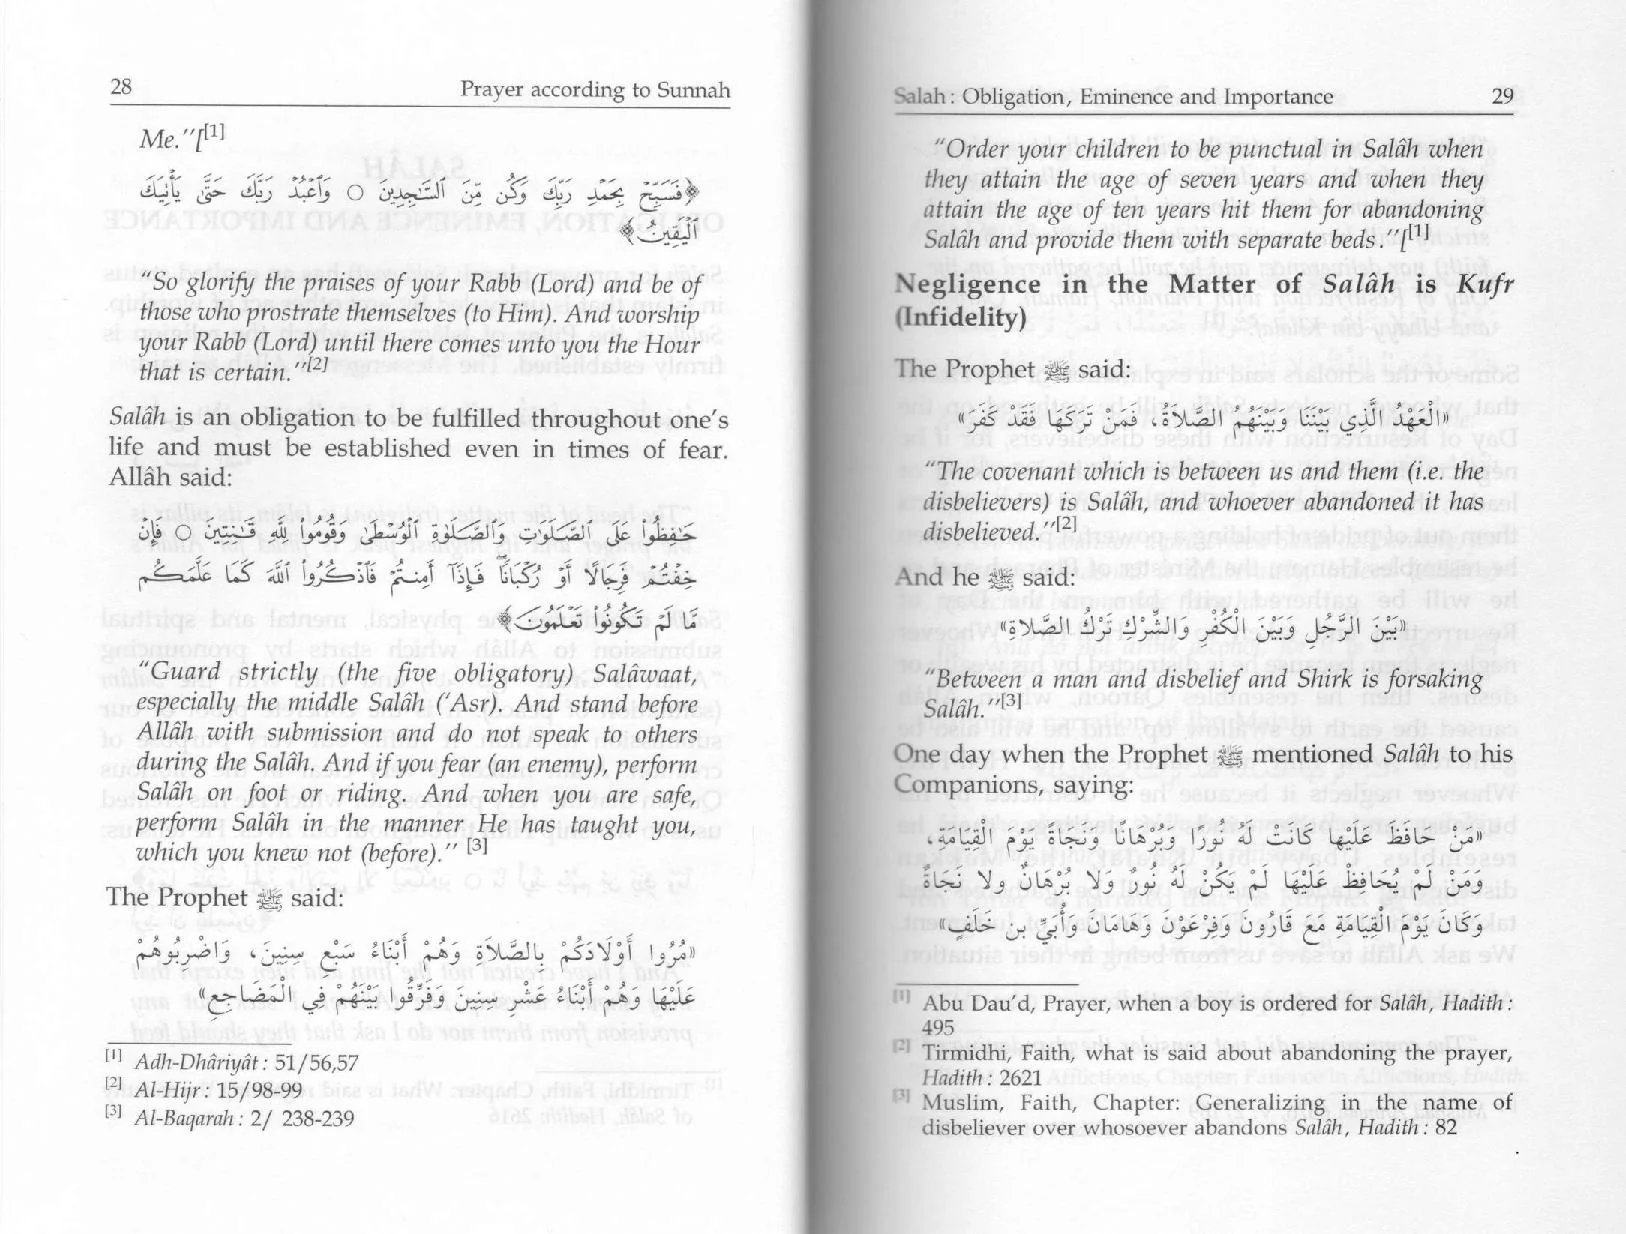 28 Prayer according to Sunnah
Me."[[1]
﴿فَسَبِّحْ بِحَمْدِ رَبِّكَ وَكُن مِّنَ السَّاجِدِينَ ○ وَاعْبُدْ رَبَّكَ حَتَّى يَأْتِيَكَ
الْيَقِينُ﴾
"So glorify the praises of your Rabb (Lord) and be of
those who prostrate themselves (to Him). And worship
your Rabb (Lord) until there comes unto you the Hour
that is certain."[2]
Salâh is an obligation to be fulfilled throughout one's
life and must be established even in times of fear.
Allâh said:
حَافِظُوا عَلَى الصَّلَوَاتِ وَالصَّلَوٰةِ الْوُسْطَىٰ وَقُومُوا لِلَّهِ قَانِتِينَ ○ فَإِنْ
خِفْتُمْ فَرِجَالًا أَوْ رُكْبَانًا فَإِذَا أَمِنتُمْ فَاذْكُرُوا اللَّهَ كَمَا عَلَّمَكُم
مَّا لَمْ تَكُونُوا تَعْلَمُونَ﴾
"Guard strictly (the five obligatory) Salâwaat,
especially the middle Salâh ('Asr). And stand before
Allâh with submission and do not speak to others
during the Salâh. And if you fear (an enemy), perform
Salâh on foot or riding. And when you are safe,
perform Salâh in the manner He has taught you,
which you knew not (before)." [3]
The Prophet ﷺ said:
«مُرُوا أَوْلَادَكُمْ بِالصَّلَاةِ وَهُمْ أَبْنَاءُ سَبْعِ سِنِينَ، وَاضْرِبُوهُمْ
عَلَيْهَا وَهُمْ أَبْنَاءُ عَشْرِ سِنِينَ وَفَرِّقُوا بَيْنَهُمْ فِي الْمَضَاجِعِ»
[1] Adh-Dhâriyât : 51/56,57
[2] Al-Hijr : 15/98-99
[3] Al-Baqarah : 2/ 238-239
Salah : Obligation, Eminence and Importance 29
"Order your children to be punctual in Salâh when
they attain the age of seven years and when they
attain the age of ten years hit them for abandoning
Salâh and provide them with separate beds."[[1]
Negligence in the Matter of Salâh is Kufr
(Infidelity)
The Prophet ﷺ said:
«الْعَهْدُ الَّذِي بَيْنَنَا وَبَيْنَهُمُ الصَّلَاةُ، فَمَنْ تَرَكَهَا فَقَدْ كَفَرَ»
"The covenant which is between us and them (i.e. the
disbelievers) is Salâh, and whoever abandoned it has
disbelieved."[2]
And he ﷺ said:
«بَيْنَ الرَّجُلِ وَبَيْنَ الْكُفْرِ وَالشِّرْكِ تَرْكُ الصَّلَاةِ»
"Between a man and disbelief and Shirk is forsaking
Salâh."[3]
One day when the Prophet ﷺ mentioned Salâh to his
Companions, saying:
«مَنْ حَافَظَ عَلَيْهَا كَانَتْ لَهُ نُورًا وَبُرْهَانًا وَنَجَاةً يَوْمَ الْقِيَامَةِ،
وَمَنْ لَمْ يُحَافِظْ عَلَيْهَا لَمْ يَكُنْ لَهُ نُورٌ وَلَا بُرْهَانٌ وَلَا نَجَاةٌ
وَكَانَ يَوْمَ الْقِيَامَةِ مَعَ قَارُونَ وَفِرْعَوْنَ وَهَامَانَ وَأُبَيِّ بْنِ خَلَفٍ»
[1] Abu Dau'd, Prayer, when a boy is ordered for Salâh, Hadith :
495
[2] Tirmidhi, Faith, what is said about abandoning the prayer,
Hadith : 2621
[3] Muslim, Faith, Chapter: Generalizing in the name of
disbeliever over whosoever abandons Salâh, Hadith : 82